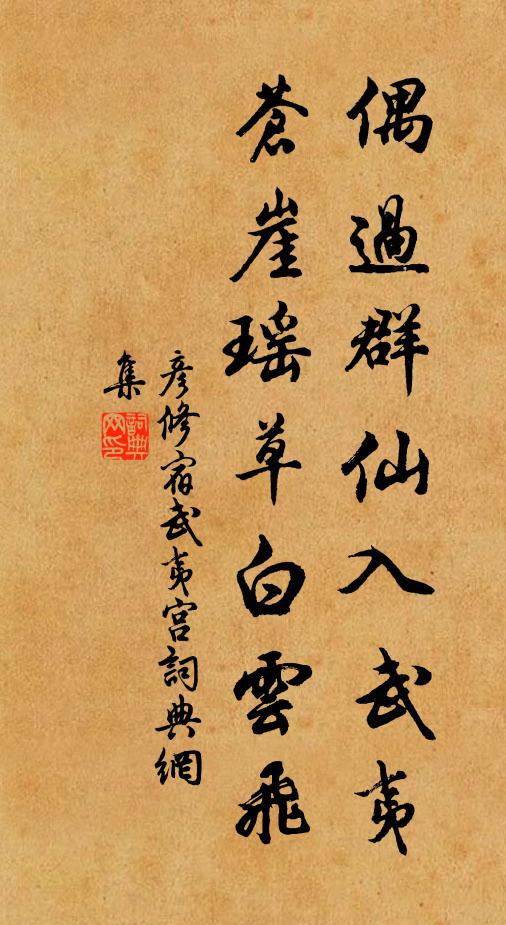 偶過群仙入武夷
蒼崖瑤草白雲飛
彥修宿武夷宮詞典網
集
詞典
网印